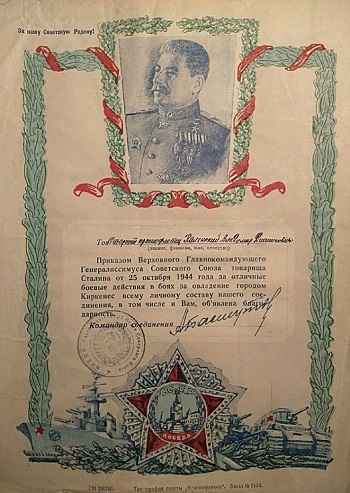 За нашу Советскую Родину!
Тов.
(звание, фамилия, имя, отчество)
Приказом Верховного Главнокомандующего
Генералиссимуса Советского Союза товарища
Сталина от 25 октября 1944 года за отличные
боевые действия в боях за овладение городом
Киркенес всему личному составу нашего сое-
динения, в том числе и Вам, объявлена благо-
дарность.
Командир соединения
СССР
ПОБЕДА
Типография газеты „Краснофлотец". Заказ № 1124.